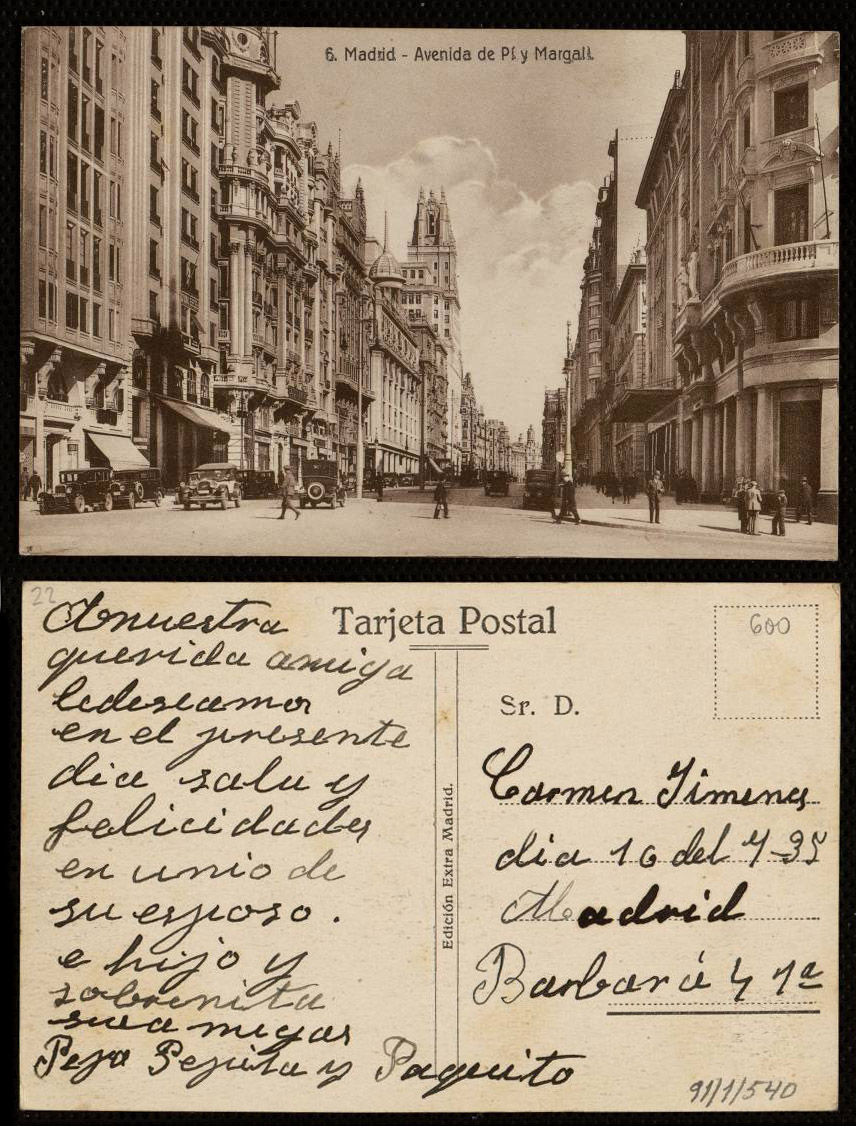 6. Madrid - Avenida de Pí y Margall.
22
Anuestra
querida amiga
ledeseamos
en el presente
dia salu y
felicidades
en unio de
su esposo.
e hijo y
sobrinita
sus amigas
Pepa Pepita y Paquito
Tarjeta Postal
600
Edición Extra Madrid.
Sr. D.
Carmen Jimenes
dia 16 del 7-35
Madrid
Barbará 4 1ª
91/1/540